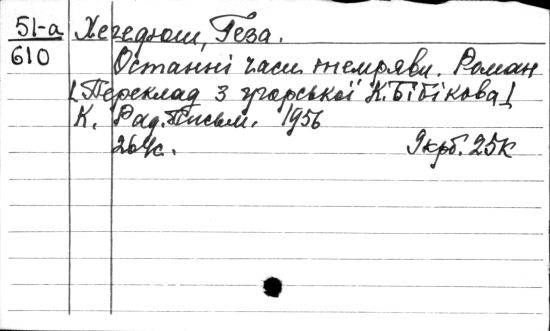 51-а Хегедюш, Геза.
610
Останні часи темряви. Роман
[Переклад з угорської К. Бібікова]
К. Рад. Письм. 1956
264с. 9крб. 25к